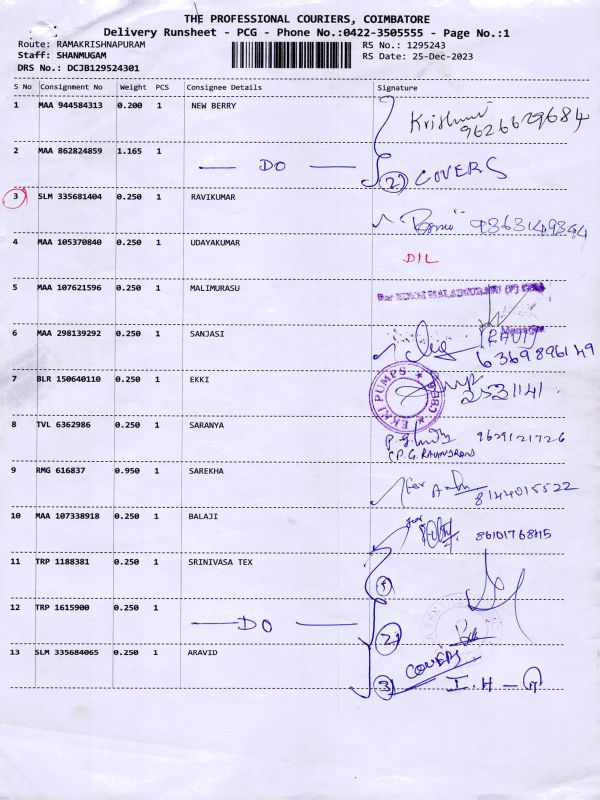 THE PROFESSIONAL COURIERS, COIMBATORE
Delivery Runsheet - PCG - Phone No.:0422-3505555 - Page No.:1
Route: RAMAKRISHNAPURAM
RS No.: 1295243
Staff: SHANMUGAM
RS Date: 25-Dec-2023
DRS No.: DCJB129524301
S No Consignment No Weight PCS Consignee Details Signature
1 MAA 944584313 0.200 1 NEW BERRY
9626629684
2 MAA 862824859 1.165 1 — DO — 2) COVERS
3 SLM 335681404 0.250 1 RAVIKUMAR 9363149344
4 MAA 105370840 0.250 1 UDAYAKUMAR DIL
5 MAA 107621596 0.250 1 MALIMURASU
6 MAA 298139292 0.250 1 SANJASI (RAVI)
6369896149
7 BLR 150640110 0.250 1 EKKI EKKI PUMPS 2531141
8 TVL 6362986 0.250 1 SARANYA 9629121726
9 RMG 616837 0.950 1 SAREKHA for 8144015522
10 MAA 107338918 0.250 1 BALAJI for 8610176845
11 TRP 1188381 0.250 1 SRINIVASA TEX
12 TRP 1615900 0.250 1 — DO — 2)
13 SLM 335684065 0.250 1 ARAVID 3) COVERS